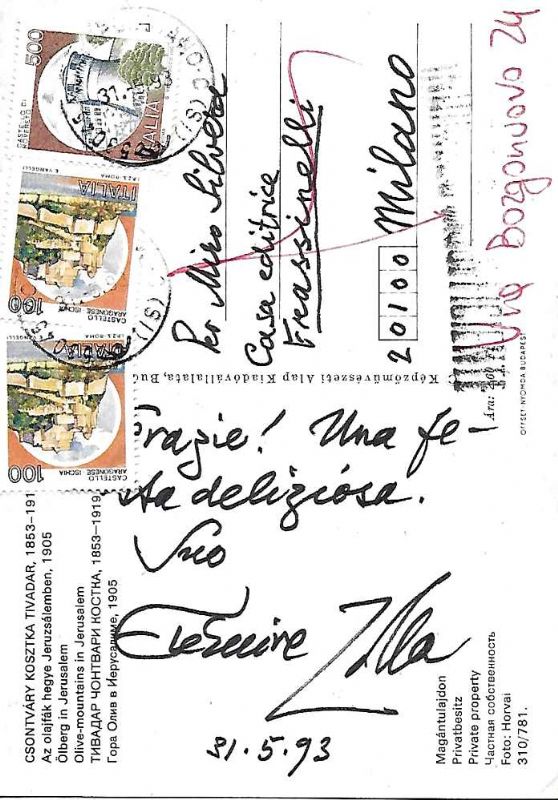 Grazie! Una fe-
sta deliziosa.
Suo
31.5.93
Per Miro Silvera
Casa editrice
Frassinelli
20100 Milano
Via Borgonuovo 24
500
ITALIA
100
ITALIA
CASTELLO
ARAGONESE
ISCHIA
E. VANGELLI
I.P.Z.S. - ROMA
100
CASTELLO
ARAGONESE
ISCHIA
Képzőművészeti Alap Kiadóvállalata, Bu
Ára:
OFFSET-NYOMDA BUDAPEST
CSONTVÁRY KOSZTKA TIVADAR, 1853–191
Az olajfák hegye Jeruzsálemben, 1905
Ölberg in Jerusalem
Olive-mountains in Jerusalem
ТИВАДАР ЧОНТВАРИ КОСТКА, 1853–1919
Гора Олив в Иерусалиме, 1905
Magántulajdon
Privatbesitz
Private property
Частная собственность
Foto: Horvai
310/781.